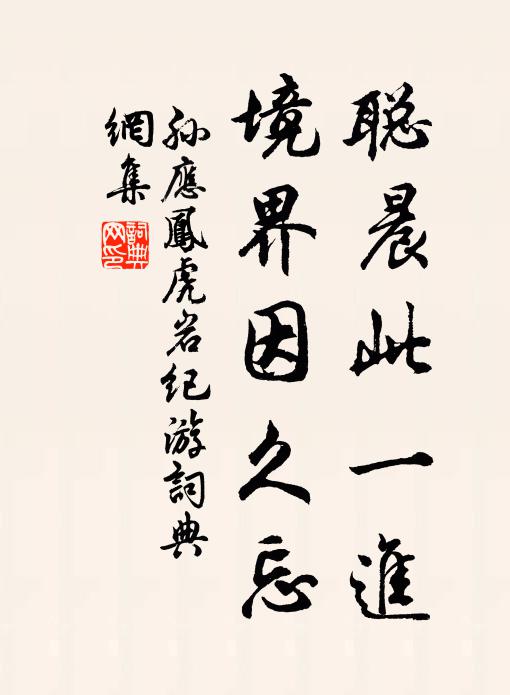 聪晨此一進
境界因久忘
孙應鳳虎岩纪游詞典
網集
詞典
网印